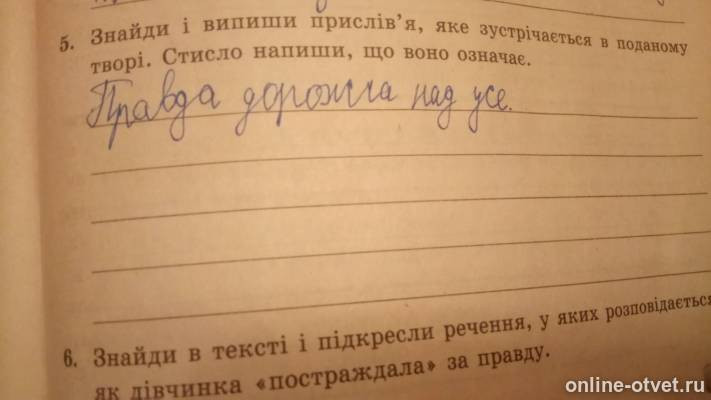 5. Знайди і випиши прислів'я, яке зустрічається в поданому
творі. Стисло напиши, що воно означає.
Правда дорожча над усе.
6. Знайди в тексті і підкресли речення, у яких розповідається
як дівчинка «постраждала» за правду.
online-otvet.ru